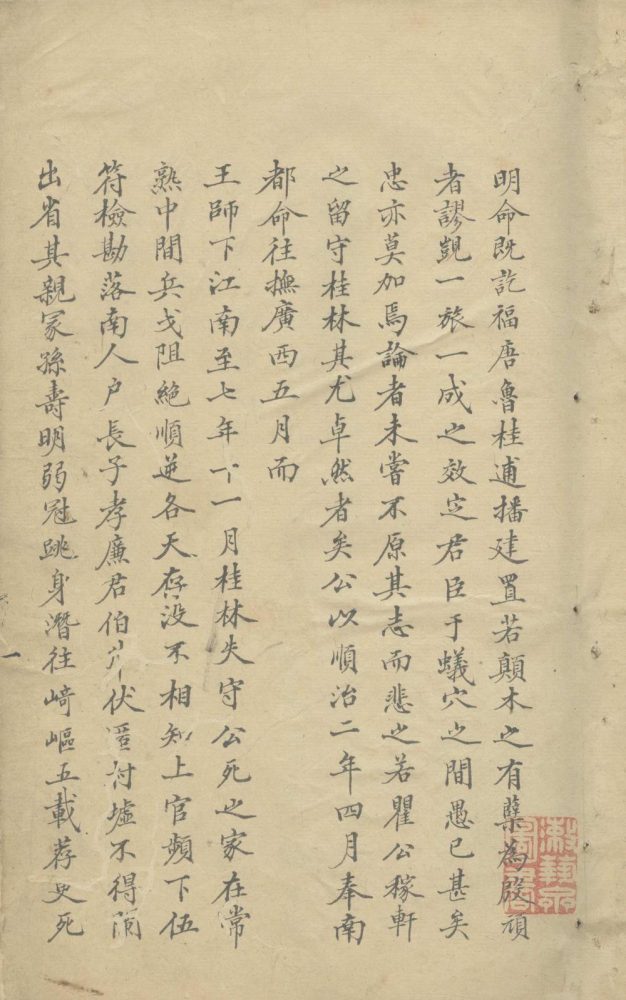 明命既訖福唐魯桂逋播建置若顛木之有蘖為殷頑
者謬覬一旅一成之效定君臣于蟻穴之間愚已甚矣
忠亦莫加焉論者未嘗不原其志而悲之若瞿公稼軒
之留守桂林其尤卓然者矣公以順治二年四月奉南
都命往撫廣西五月而
王師下江南至七年十一月桂林失守公死之家在常
熟中間兵戈阻絕順逆各天存没不相知上官頻下伍
符檢勘落南人户長子孝廉君伯升伏匿村墟不得
出省其親冢孫壽明弱冠跳身潛往崎嶇五載荐更死
一